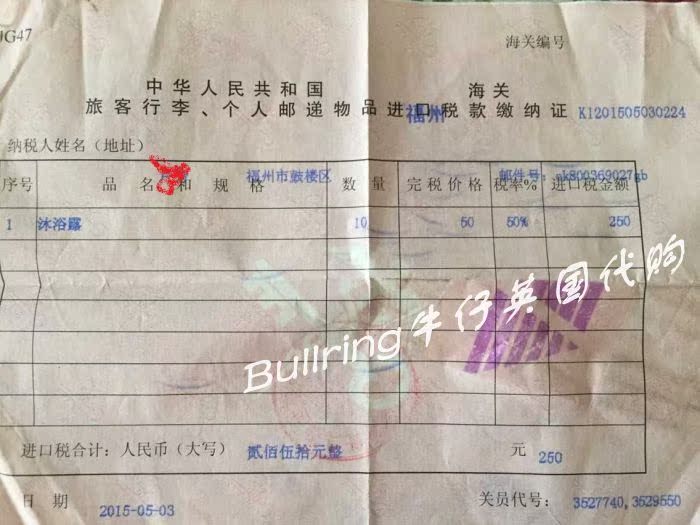 JG47
海关编号
中华人民共和国 海关
旅客行李、个人邮递物品进口税款缴纳证 福州 K1201505030224
纳税人姓名（地址）
福州市鼓楼区 邮件号：ck800369027gb
序号 品名和规格 数量 完税价格 税率% 进口税金额
1 沐浴露 10 50 50% 250
Bullring牛仔英国代购
进口税合计：人民币（大写） 贰佰伍拾元整 元 250
日期 2015-05-03 关员代号： 3527740,3529550